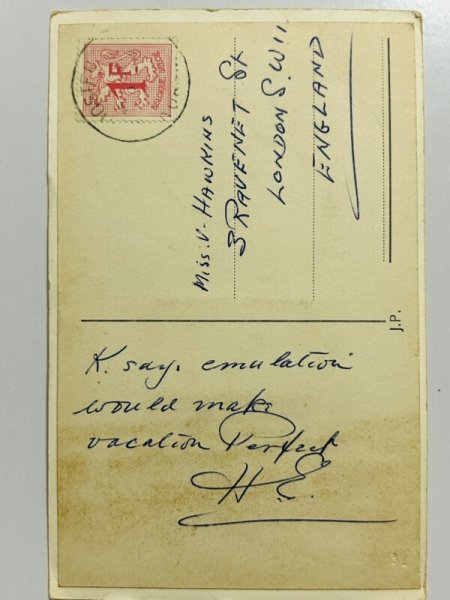 K. says emulation
would make
vacation Perfect
H.E.
Miss. V. HAWKINS
3 RAVENET St
LONDON S.W 11
ENGLAND
J.P.
1F